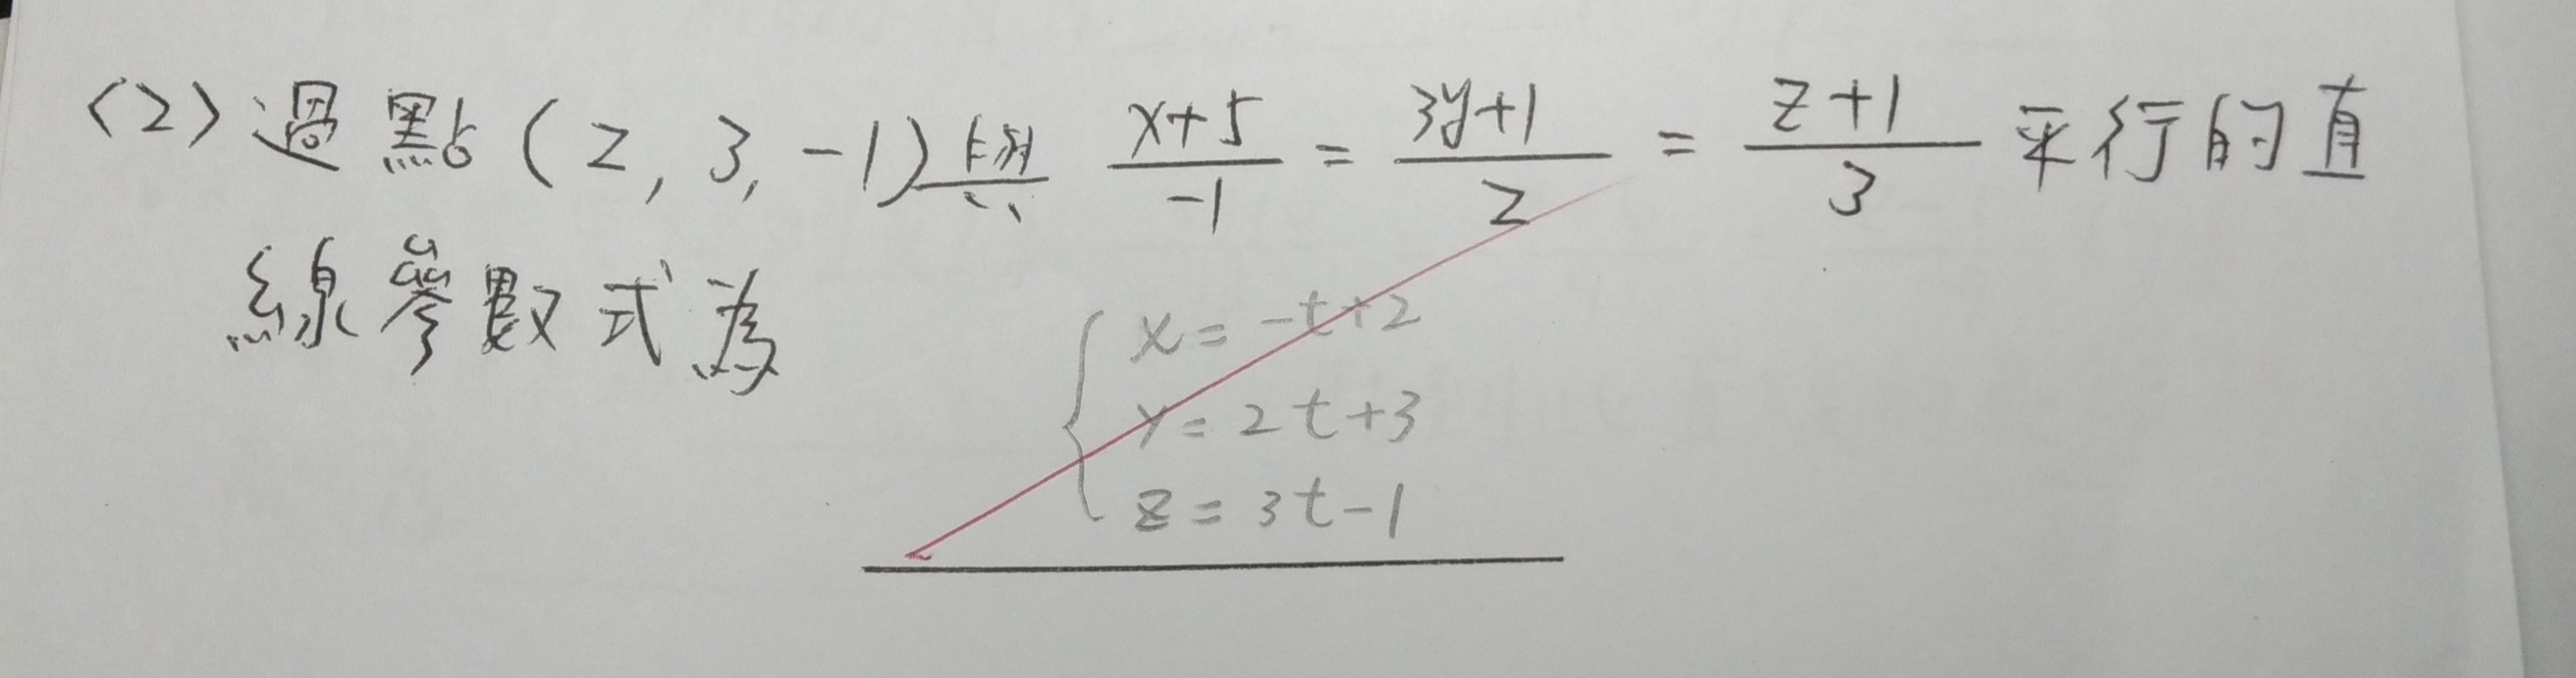 <2> 過點(2, 3, -1)與 \frac{x+5}{-1} = \frac{3y+1}{2} = \frac{z+1}{3} 平行的直
線參數式為
x = -t+2
y = 2t+3
z = 3t-1